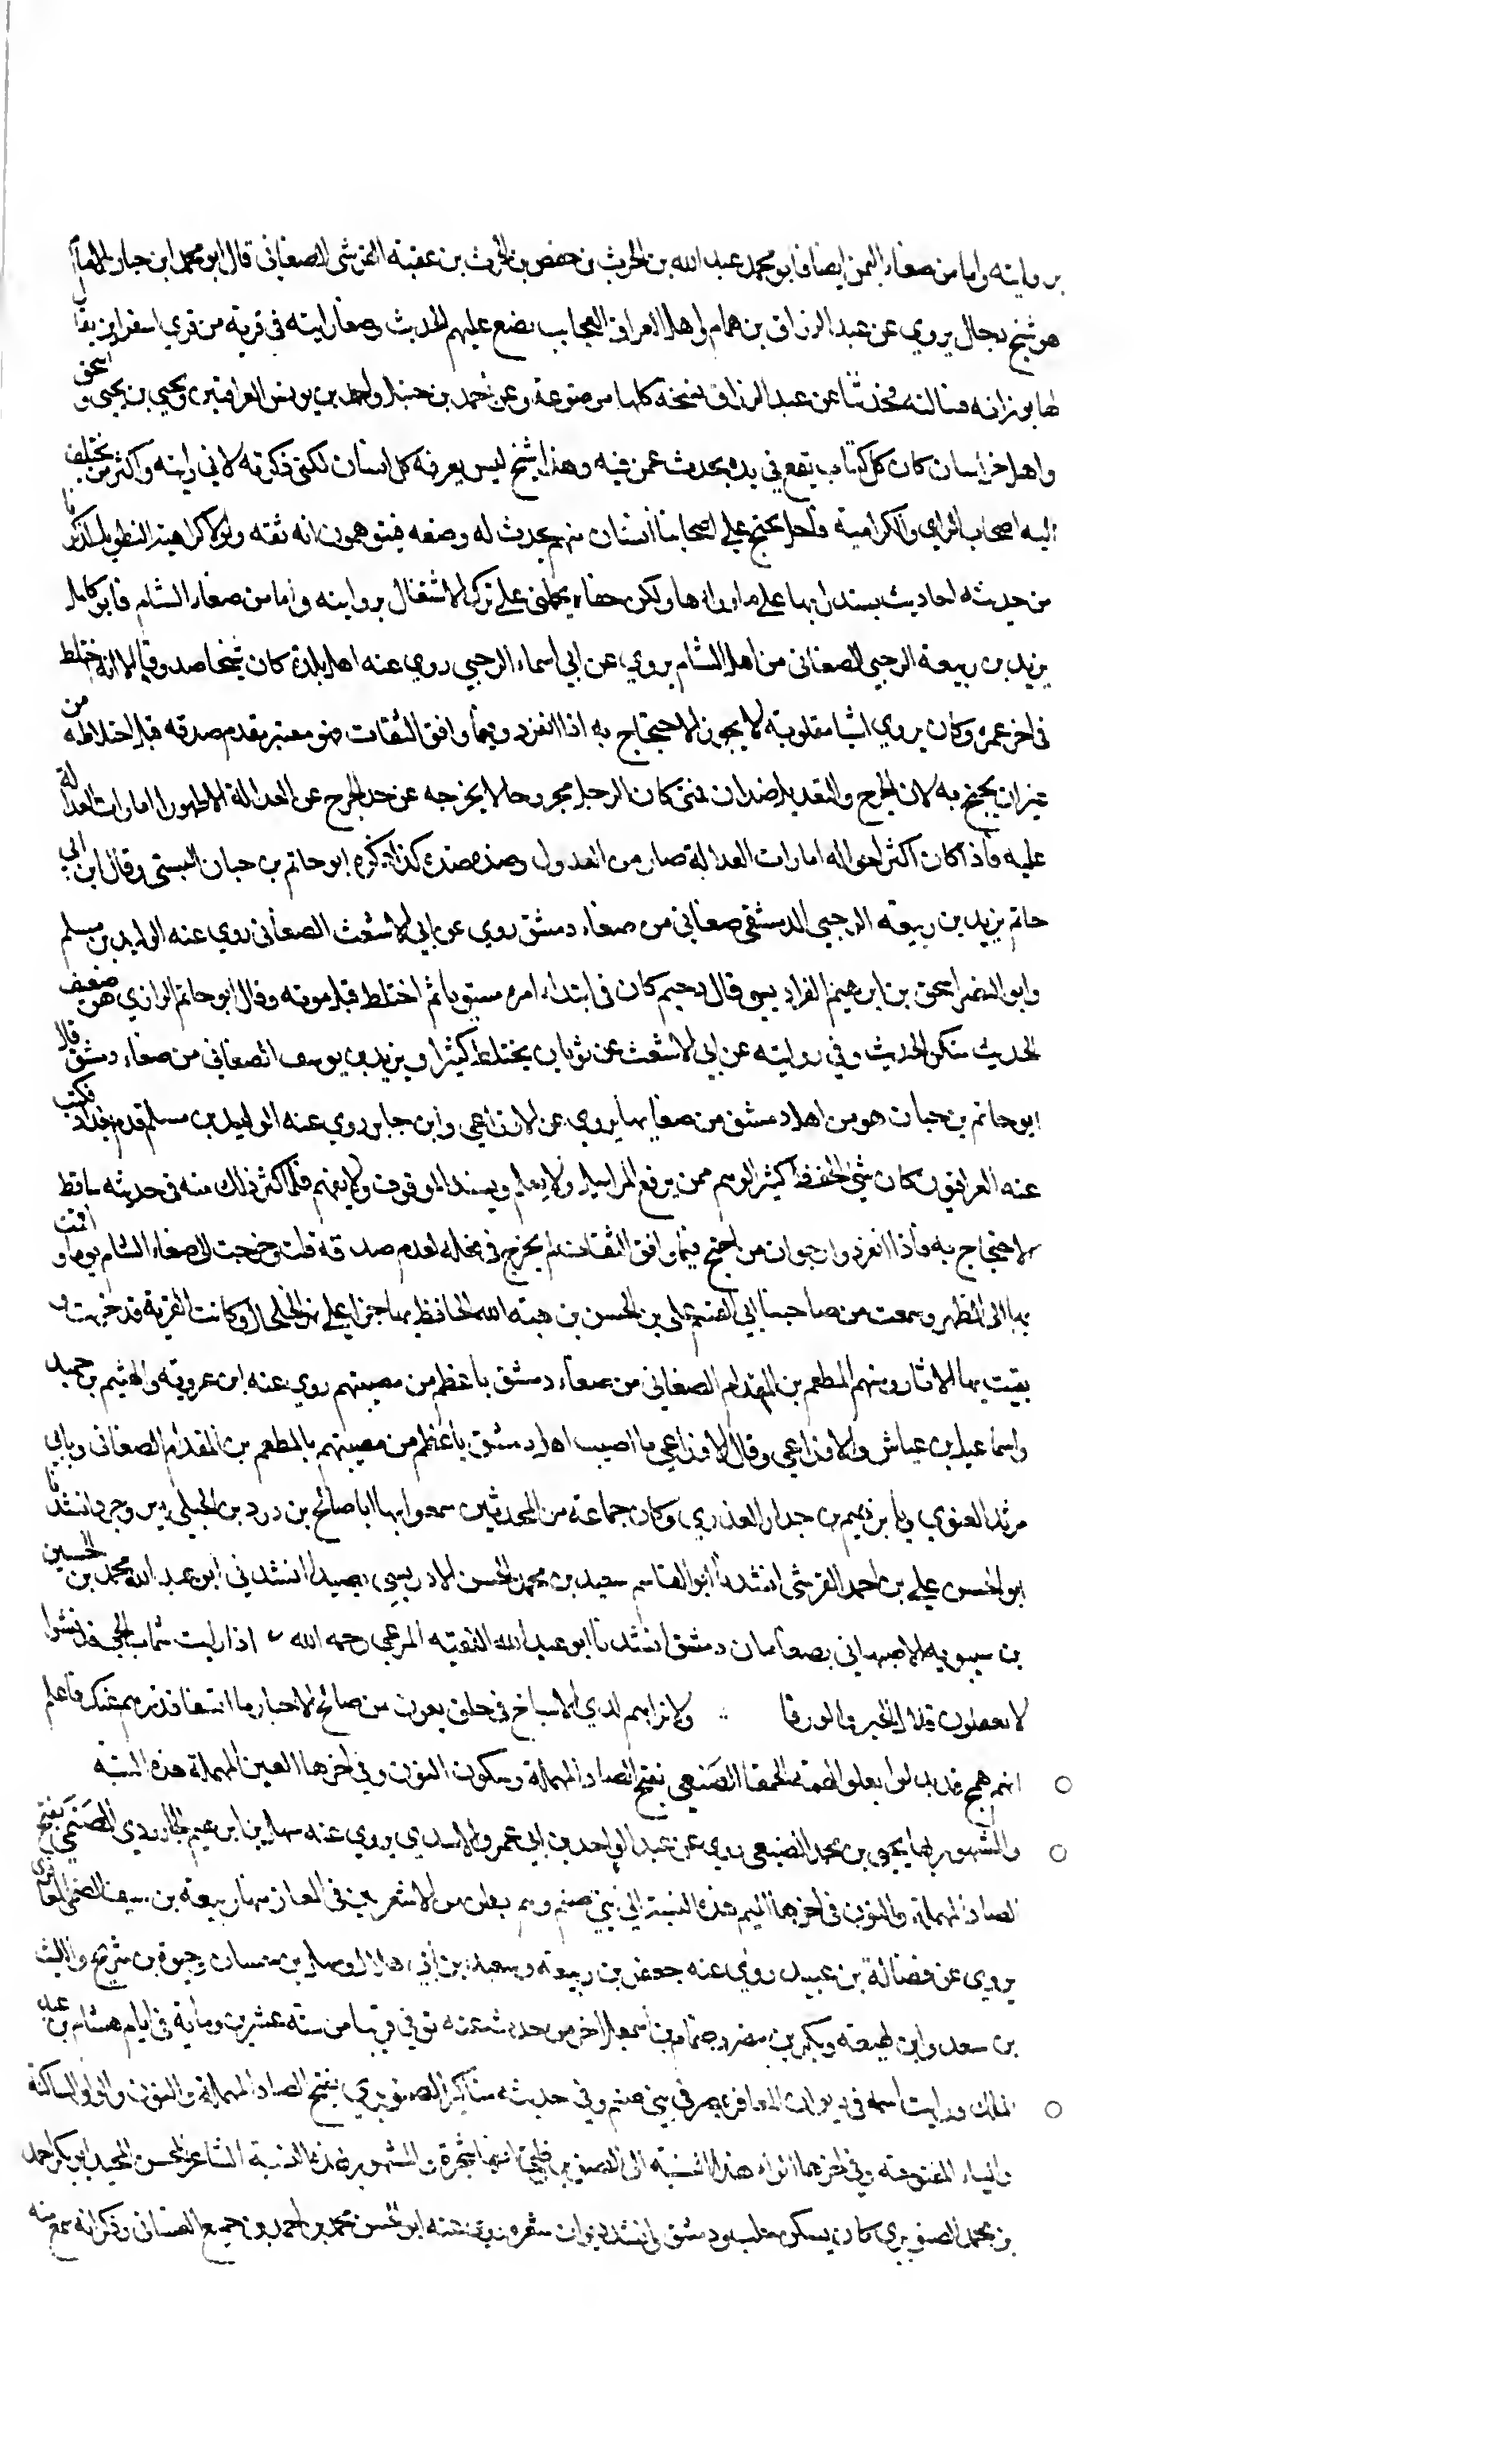 بروايته واما من صنعاء اليمن ايضا فابو محمد عبد الله بن الحرث بن حفص بن الحرث بن عقبة القرشي الصنعاني قال ابو محمد ابن حبان الامام
هو شيخ دجال يروي عن عبد الرزاق بن همام واهل العراق العجايب يضع عليهم الحديث وضعا رايته في قرية من قري اسفراين يقال
لها بوزانه فسالته فحدثنا عن عبد الرزاق بنسخة كلها موضوعة وعن احمد بن حنبل واحمد بن يونس العراقيين ويحيي بن يحيي و اسحق
واهل خراسان كان كل كتاب يقع في يده يحدث عمن فيه وهذا شيخ ليس يعرفه كل انسان لكني ذكرته لاني رايته واكثر من يختلف
اليه اصحاب الراي والكرامية ولعل محتج علي اصحابنا انسان منهم بحديث له وضعه فيتوهمون انه ثقة ولولا كراهية التطويل لذكرنا
من حديثه احاديث يستدل بها علي ما وراءها ولكن خفاه يحملني علي ترك الاشتغال بروايته واما من صنعاء الشام فابو كامل
يزيد بن ربيعة الرحبي الصنعاني من اهل الشام يروي عن ابي اسماء الرحبي روي عنه اهل بلده كان شيخا صدوقا الا انه اختلط
في اخر عمره وكان يروي اشيا مقلوبة لا يجوز الاحتجاج به اذا انفرد وفيما وافق الثقات فهو معتبر بقدم صدقه قبل اختلاطه من
غير ان يحتج به لان الجرح والتعديل ضدان فمتي كان الرجل مجروحا لا يخرجه عن حد الجرح عن العدالة الا ظهور امارات العدالة
عليه فاذا كان اكثر احواله امارات العدالة صار من العدول وضده ضده كذا ذكره ابو حاتم بن حبان البستي وقال ابن ابي
حاتم يزيد بن ربيعة الرحبي الدمشقي صنعاني من صنعاء دمشق روي عن ابي الاشعث الصنعاني روي عنه الوليد بن مسلم
وابو النضر اسحق بن ابرهيم الفراديسي وقال دحيم كان في ابتداء امره مستويا ثم اختلط قبل موته وقال ابو حاتم الرازي هو ضعيف
الحديث منكر الحديث وفي روايته عن ابي الاشعث عن ثوبان يختلط كثيرا ويزيد بن يوسف الصنعاني من صنعاء دمشق قال
ابو حاتم بن حبان هو من اهل دمشق من صنعا بها يروي عن الاوزاعي وابن جابر روي عنه الوليد بن مسلم قدم بغداد فكتب
عنه العراقيون كان سيئ الحفظ كثير الوهم ممن يرفع المراسيل ولا يعلم ويسند الموقوف ولا يفهم فلما كثر ذلك منه في حديثه سقط
الاحتجاج به فاذا انفرد وارجو ان من احتج فيما وافق الثقات لم يحرج في فعله لقدم صدقه قلت وخرجت الي صنعاء الشام يوما و اقمت
بها الي الظهر وسمعت من صاحبنا ابي القسم علي بن الحسن بن هبة الله الحافظ بها جزا علي نهر الخلخال وكانت القرية قد خربت و
بقيت بها الاثار ومنهم المطعم بن المقدام الصنعاني من صنعاء دمشق باعظم من مصيبتهم روي عنه ابن عروبة والهيثم بن حميد
واسماعيل بن عياش والاوزاعي وقال الاوزاعي ما اصيب اهل دمشق باعظم من مصيبتهم بالمطعم بن المقدام الصنعاني وبابي
مرثد الغنوي وبابرهيم بن جدار العذري وكان جماعة من المحدثين سمعوا بها ابا صالح بن درد بن الجبلي انشدنا
ابو الحسن علي بن احمد القرشي انشدنا ابو القاسم سعيد بن محمد بن الحسن الادريسي بصيدا انشدني ابو عبد الله محمد بن الحسين
بن سيبويه الاصبهاني بصنعا من دمشق انشدنا ابو عبد الله الفقيه المرعي رحمه الله اذا رايت شباب الحي قد نشوا
لا يحملون قلال الحبر والورقا ولا تراهم لدي الاشياخ في حلق يعون من صالح الاخبار ما اتسقا فذرهم عنك واعلم
انهم همج قد بدلوا بعلو الهمة الحمقا الصنعي بفتح الصاد المهملة وسكون النون وفي اخرها العين المهملة هذه النسبة
والمشهور بها يحيي بن محمد الصنعي روي عن عبد الواحد بن ابي عمرو الاسدي روي عنه سهل بن ابرهيم الجارودي الصنمي بفتح
الصاد المهملة والنون في اخرهما الميم هذه النسبة الي بني صنم وهم بطن من الاشعريين في المعافر منها ربيعة بن سيف الصنمي المعافري
يروي عن فضالة بن عبيد روي عنه جعفر بن ربيعة وسعيد بن ابي هلال وسهل بن حسان وحيوة بن شريح والليث
بن سعد وابن لهيعة وبكر بن مضر وضمام بن اسمعيل اخر من حدث عنه توفي قريبا من سنة عشرين وماية في ايام هشام بن عبد
الملك ورايت اسمه في ديوان المعافر بمصر في بني صنم وفي حديثه مناكير الصنوبري بفتح الصاد المهملة والنون والواو الساكنة
والباء المفتوحة وفي اخرها الراء هذه النسبة الي الصنوبر وظني انها شجرة والمشهور بهذه النسبة الشاعر المحسن المجيد ابو بكر احمد
بن محمد الصنوبري كان يسكن حلب ودمشق وانشد ديوان شعره روي عنه ابو الحسن محمد بن احمد بن جميع الغساني وذكر انه سمع منه